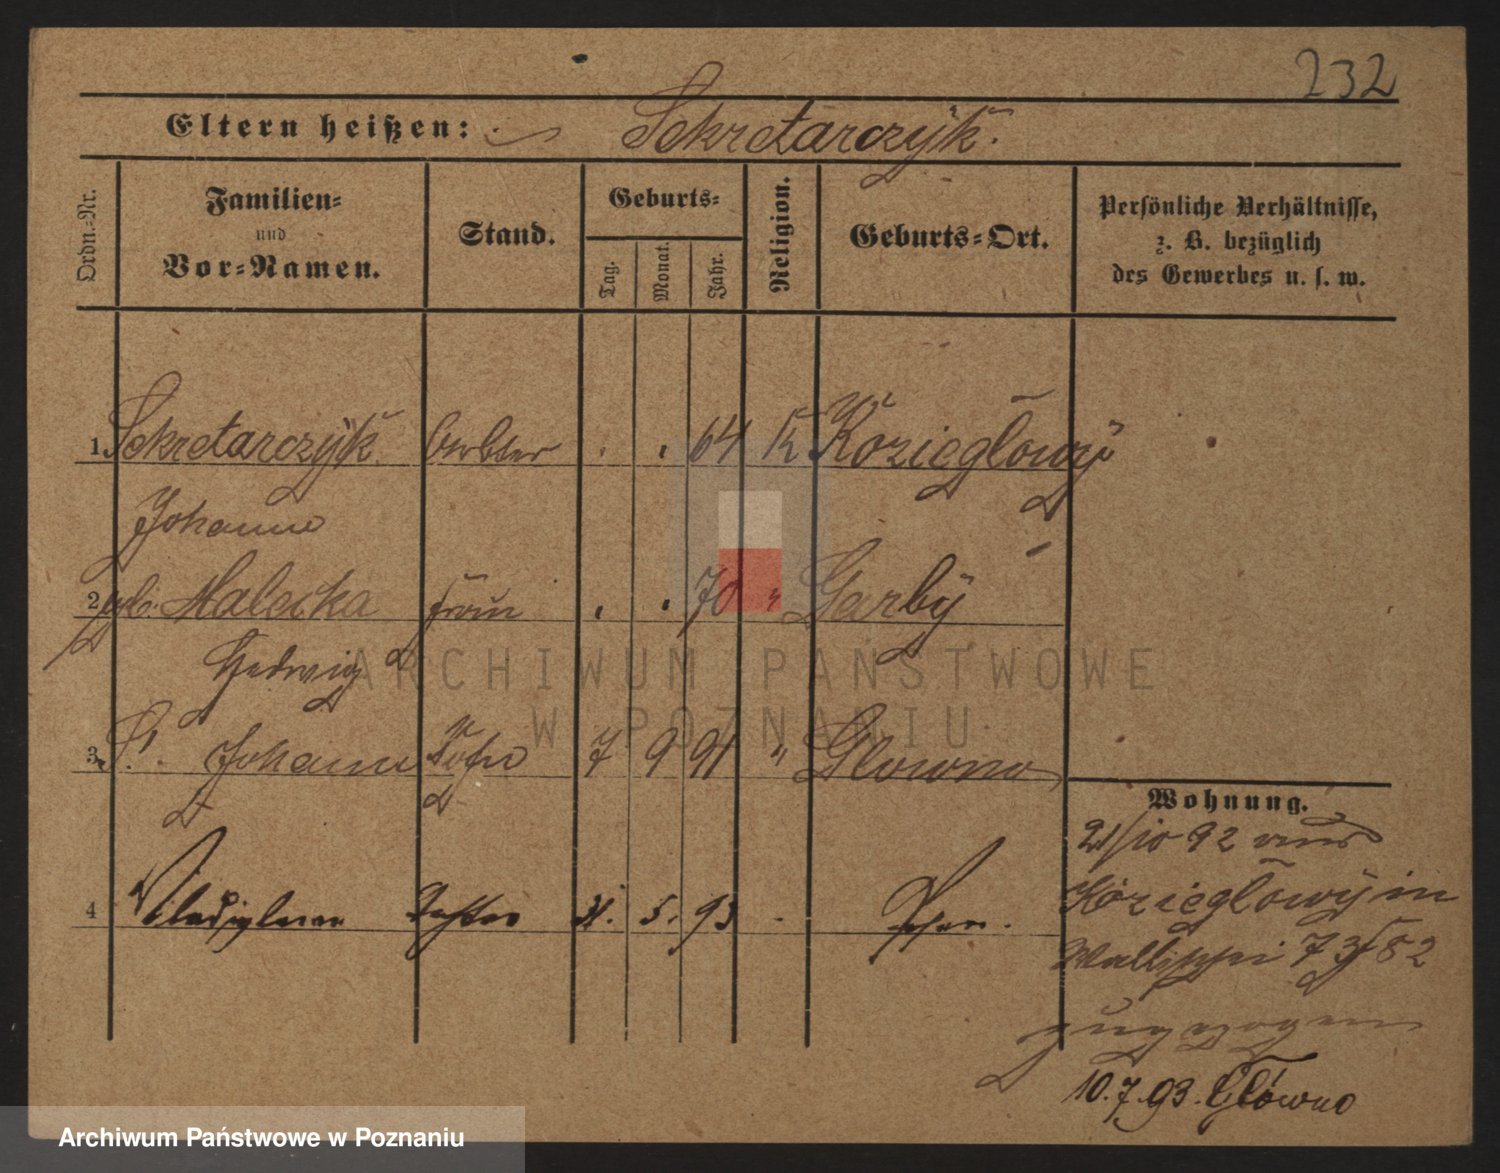 232
Eltern heißen: Sekretarczÿk.
Ordn.-Nr.
Familien-
und
Vor-Namen.
Stand.
Geburts-
Tag.
Monat.
Jahr.
Religion.
Geburts-Ort.
Persönliche Verhältnisse,
z. B. bezüglich
des Gewerbes u. s. w.
1. Sekretarczÿk 64 K Kozieglowÿ
Johann
2 geb. Malecka Frau 70 " Garbÿ
Hedwig
3. S. Johann Sohn 7 9 91 " Glowno
4 Tochter 31. 5. 93 Posen.
Wohnung.
21/10 92 aus
Kozieglowÿ in
Wallischei 73/82
zugezogen
10.7.93. Główno
ARCHIWUM PAŃSTWOWE
W POZNANIU
Archiwum Państwowe w Poznaniu